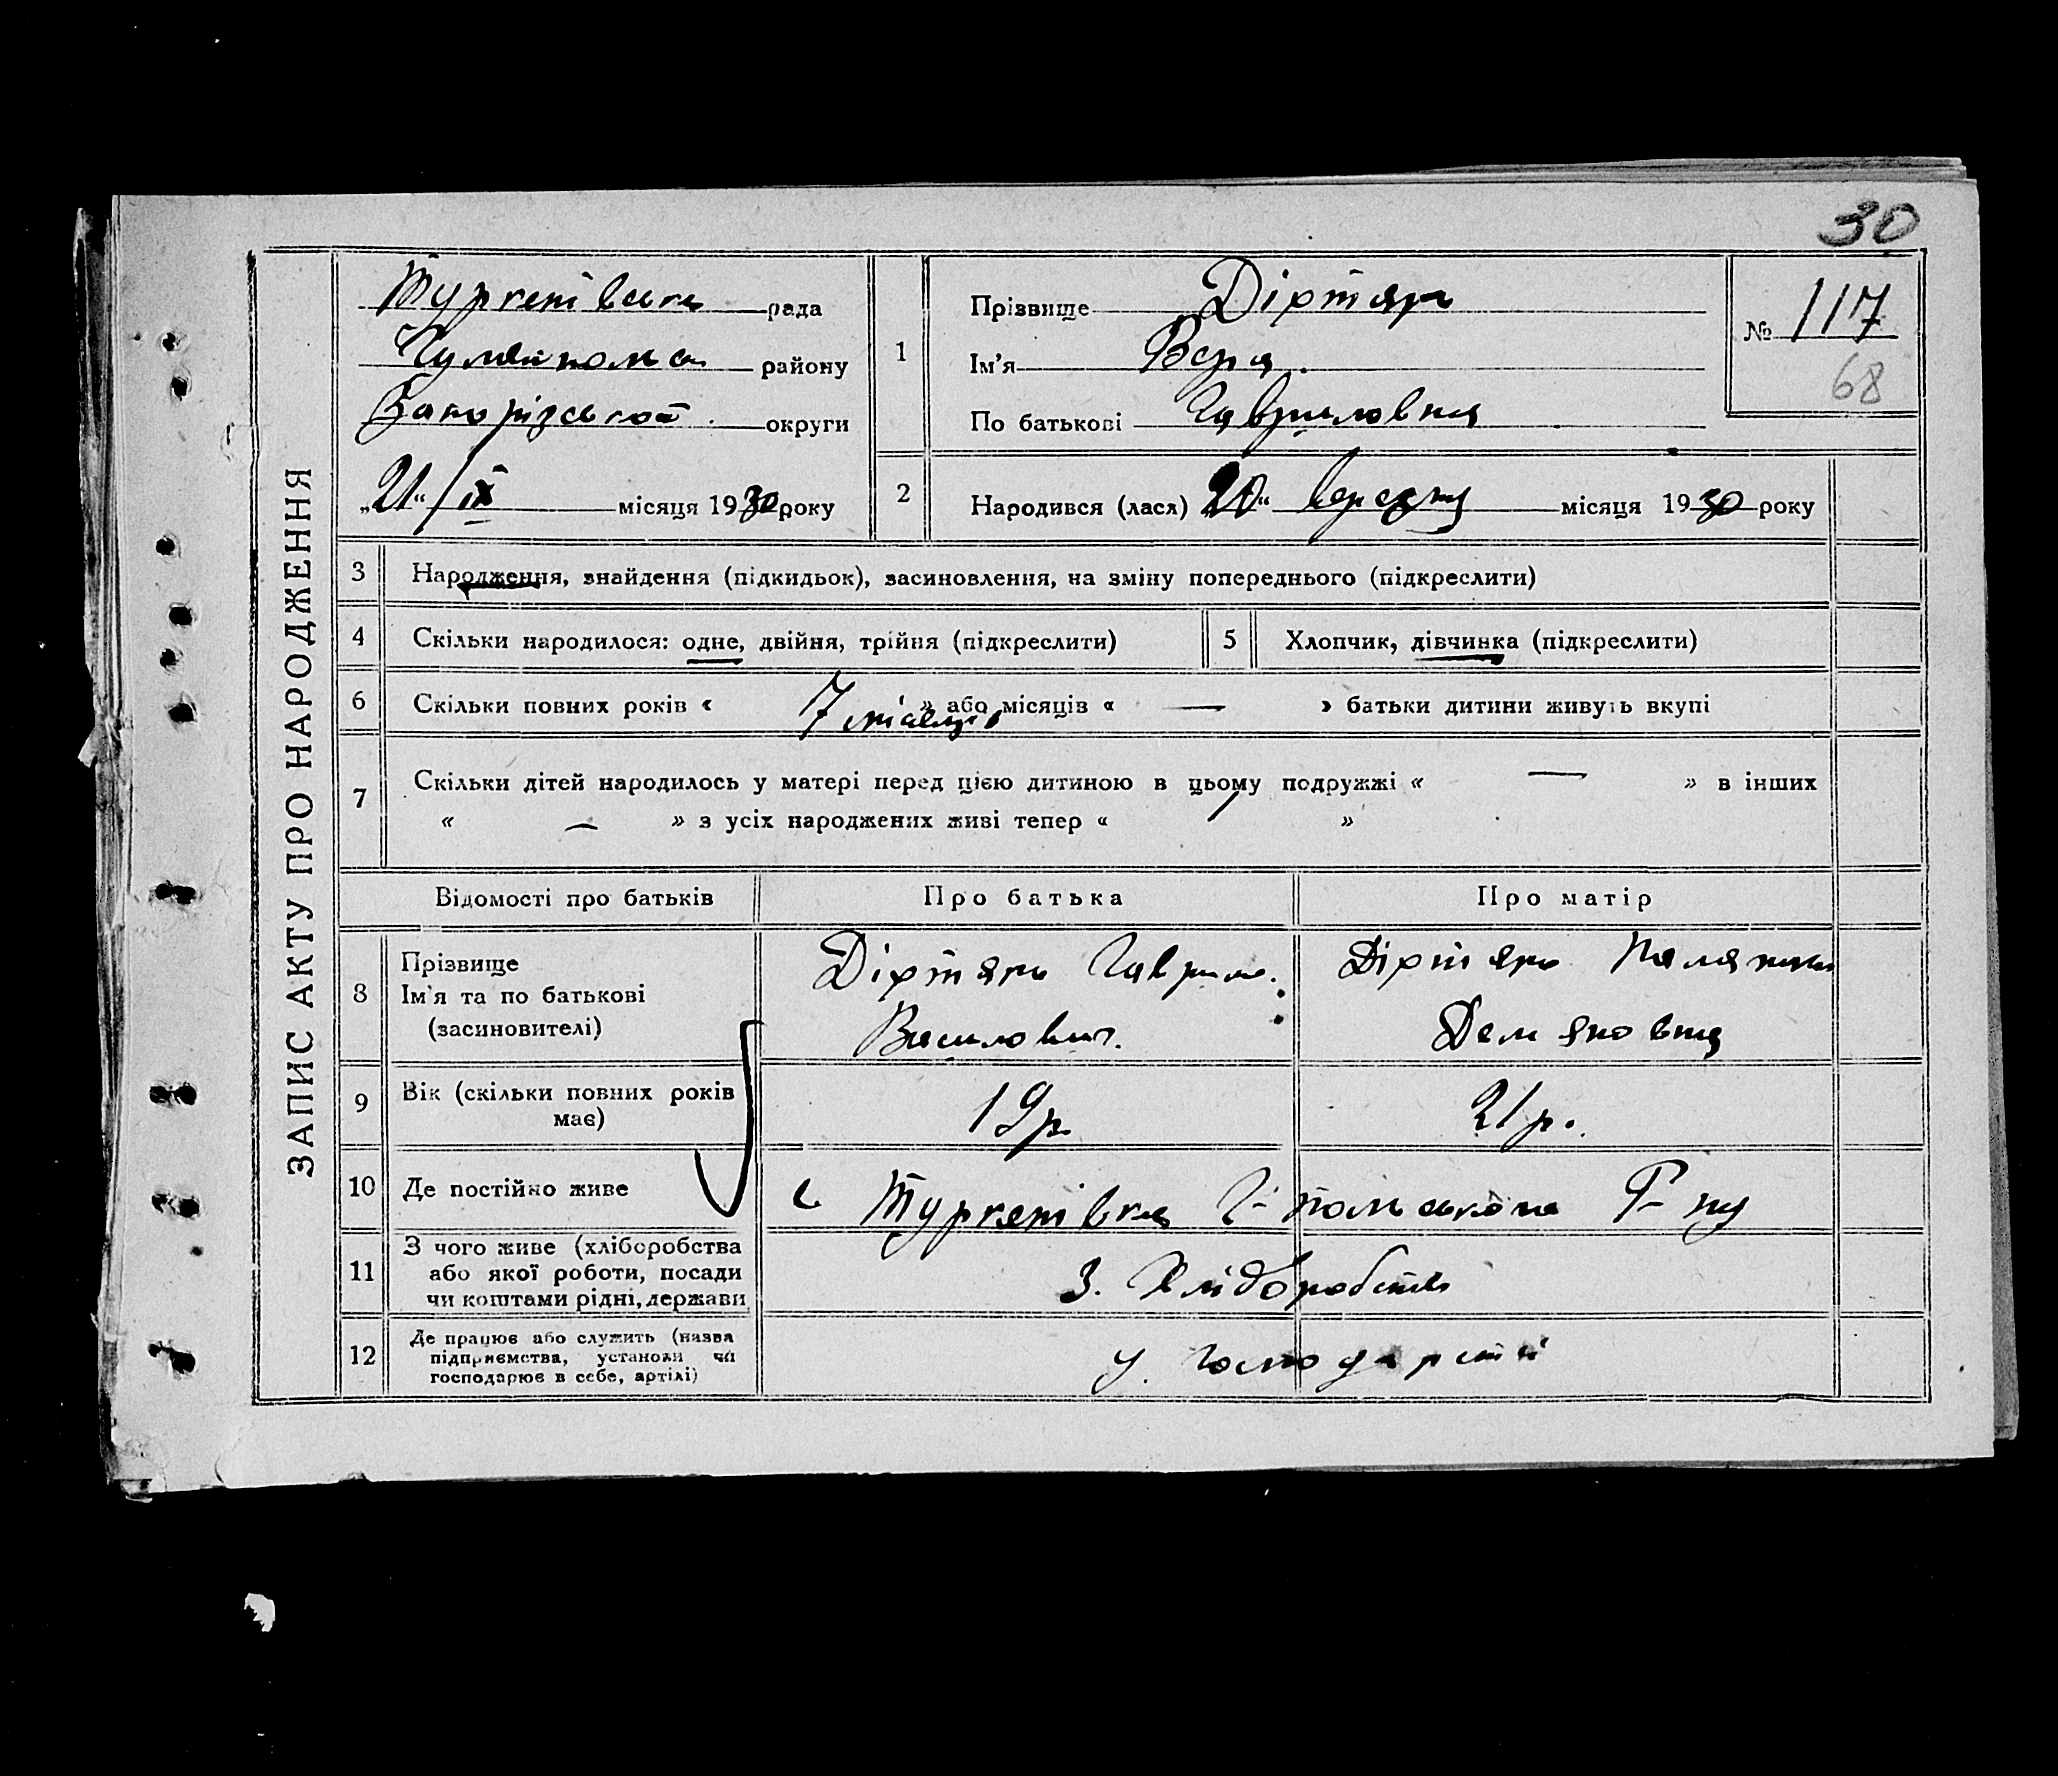 30
Туркенівська рада
Гуляйпольск району
Запорізської округи
„21“ /ІХ місяця 1930 року
1
Прізвище Діхтярь
Ім'я Вера.
По батькові Гавриловна
№ 117
68
2
Народився (лася) 20“ вересня місяця 1930 року
ЗАПИС АКТУ ПРО НАРОДЖЕННЯ
3 Народження, знайдення (підкидьок), засиновлення, на зміну попереднього (підкреслити)
4 Скільки народилося: одне, двійня, трійня (підкреслити) 5 Хлопчик, дівчинка (підкреслити)
6 Скільки повних років « 7 місяців » або місяців « — » батьки дитини живуть вкупі
7 Скільки дітей народилось у матері перед цією дитиною в цьому подружжі « — » в інших
« — » з усіх народжених живі тепер « »
Відомості про батьків Про батька Про матір
8 Прізвище
Ім'я та по батькові
(засиновителі)
Діхтярь Гаврило
Василович.
Діхтярь
Демяновна
9 Вік (скільки повних років
має)
19р
21р.
10 Де постійно живе
с Туркенівка Г-польського Р-ну
11 З чого живе (хліборобства
або якої роботи, посади
чи коштами рідні, держави
З. Хліборобств
12 Де працює або служить (назва
підприємства, установи чи
господарює в себе, артілі)
У. господарстві